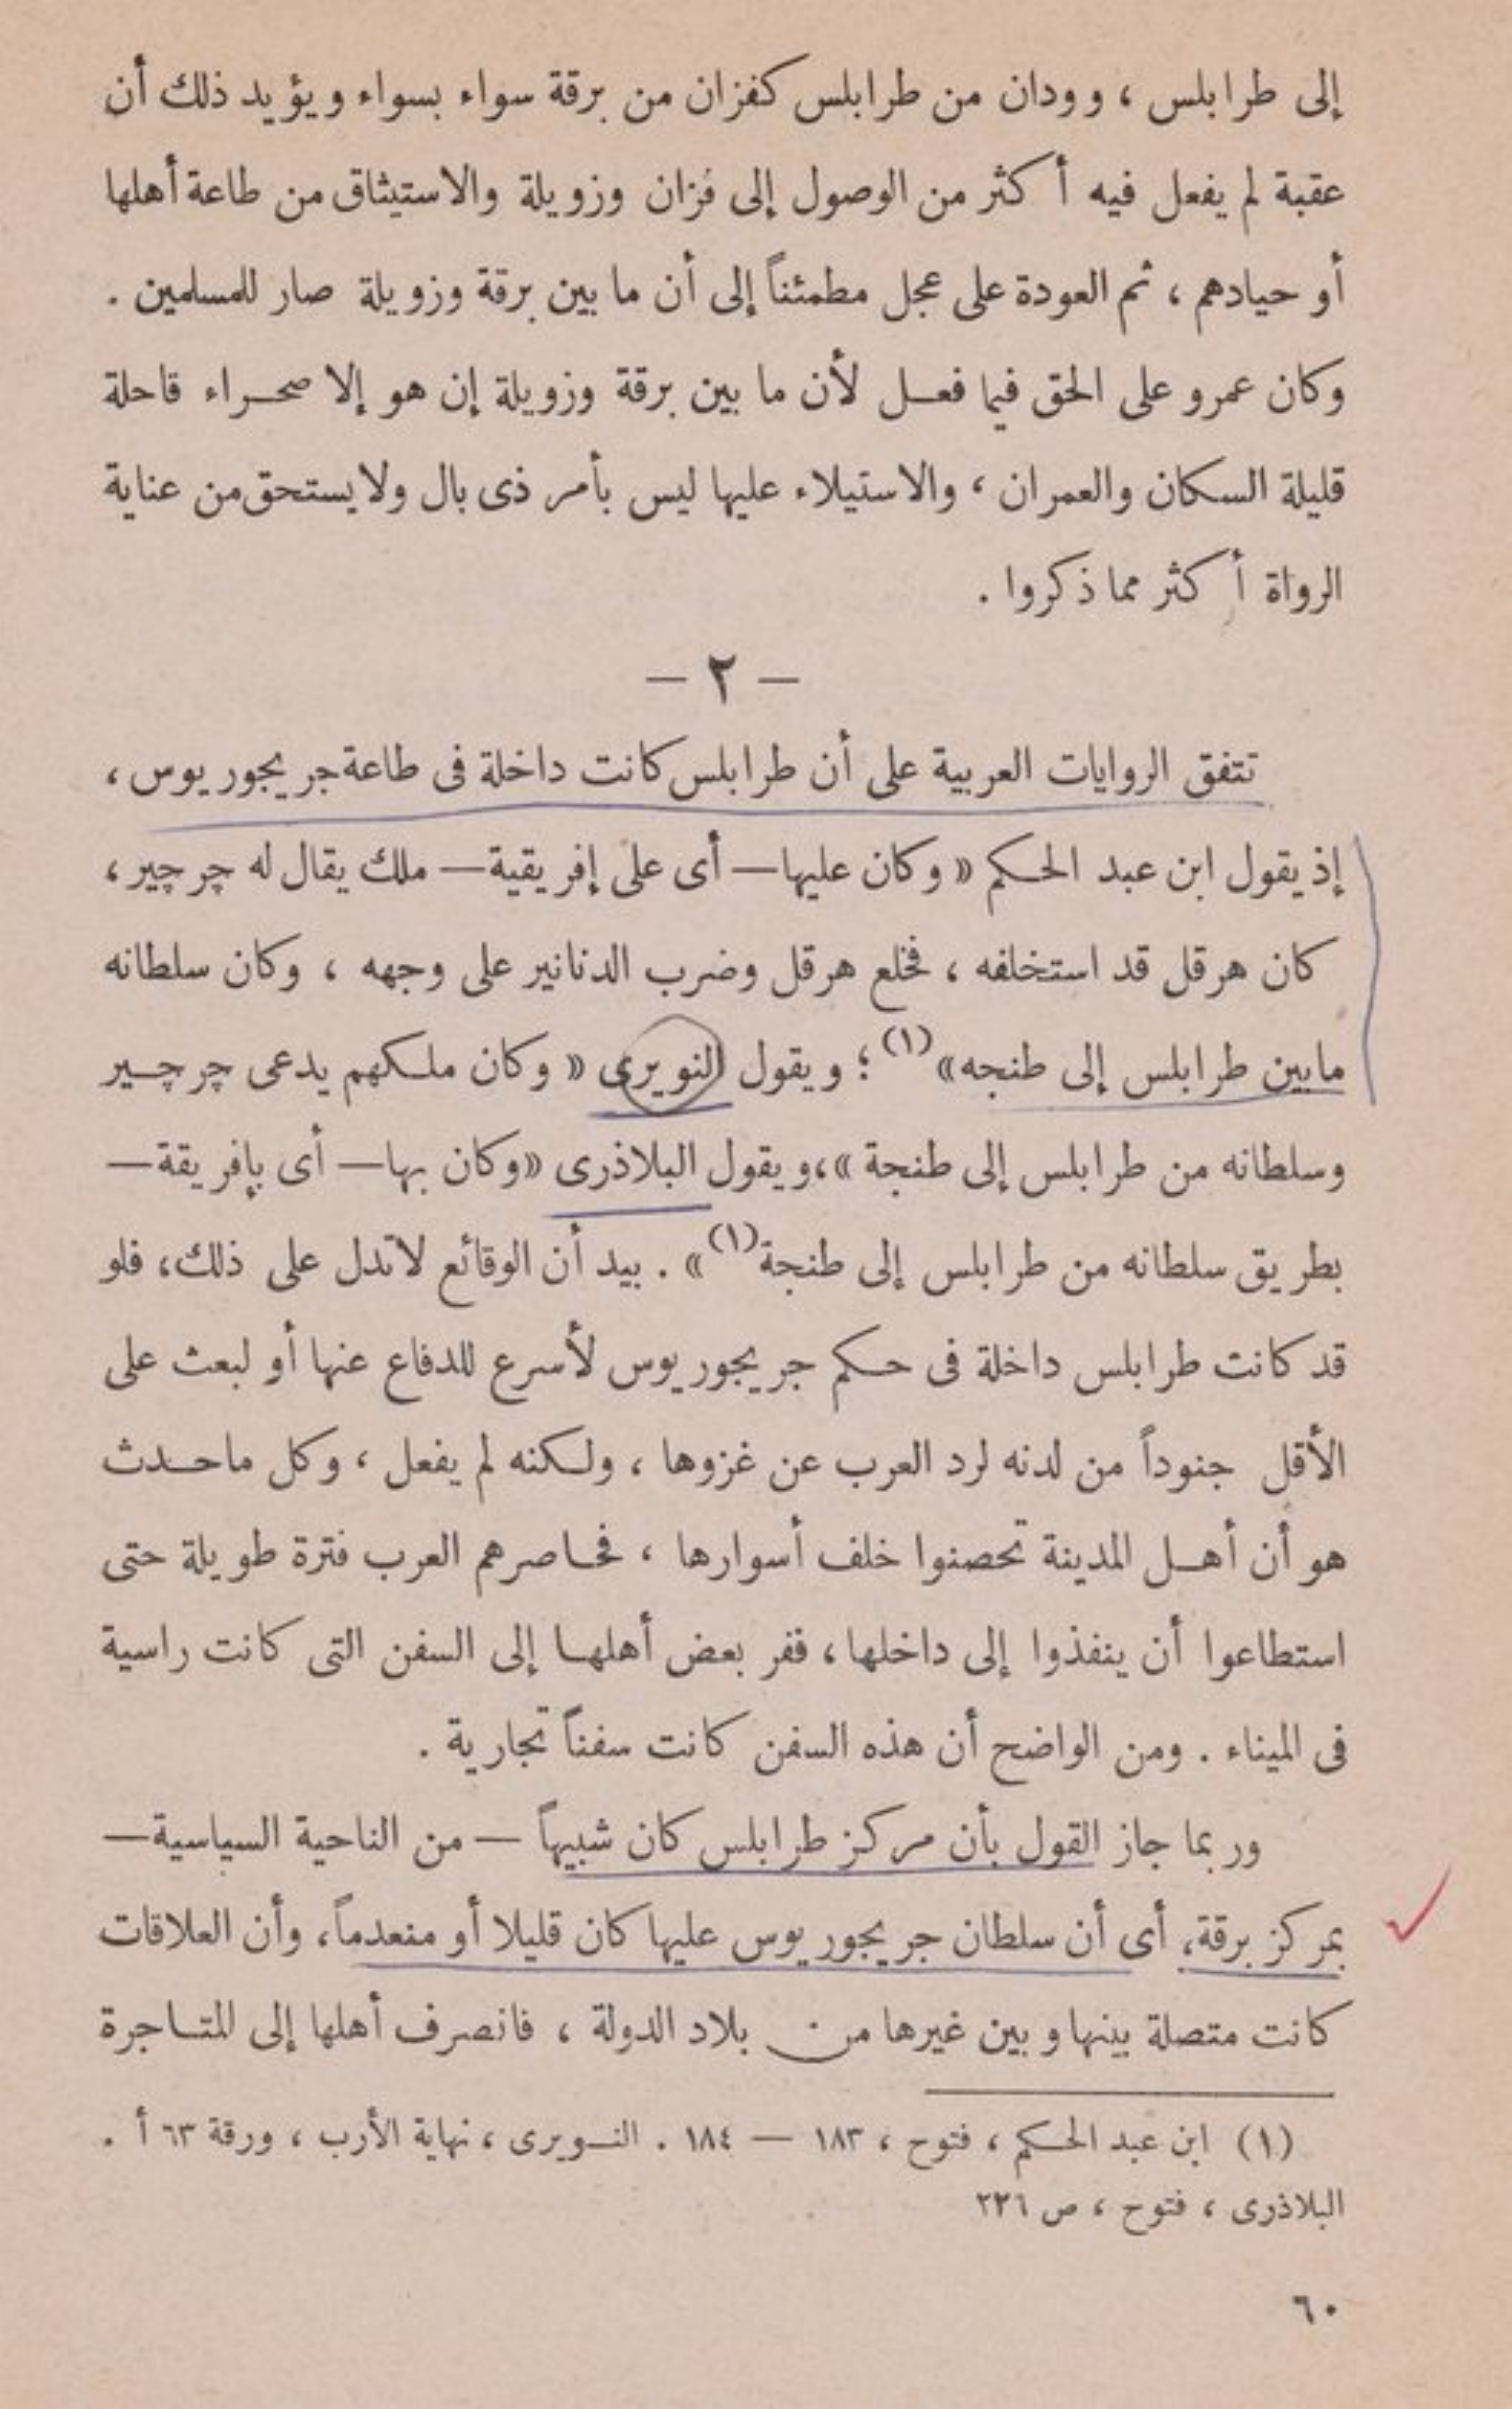 إلى طرابلس ، وودان من طرابلس كفزان من برقة سواء بسواء ويؤيد ذلك أن
عقبة لم يفعل فيه أكثر من الوصول إلى فزان وزويلة والاستيثاق من طاعة أهلها
أو حيادهم ، ثم العودة على عجل مطمئناً إلى أن ما بين برقة وزويلة صار للمسلمين .
وكان عمرو على الحق فيما فعل لأن ما بين برقة وزويلة إن هو إلا صحراء قاحلة
قليلة السكان والعمران ، والاستيلاء عليها ليس بأمر ذى بال ولا يستحق من عناية
الرواة أكثر مما ذكروا .
— ٢ —
تتفق الروايات العربية على أن طرابلس كانت داخلة فى طاعة جريجوريوس ،
إذ يقول ابن عبد الحكم « وكان عليها — أى على إفريقية — ملك يقال له چرچير ،
كان هرقل قد استخلفه ، فخلع هرقل وضرب الدنانير على وجهه ، وكان سلطانه
مابين طرابلس إلى طنجه» (١) ؛ ويقول النويرى « وكان ملكهم يدعى چرچير
وسلطانه من طرابلس إلى طنجة »، ويقول البلاذرى «وكان بها — أى بإفريقة —
بطريق سلطانه من طرابلس إلى طنجة (١) » . بيد أن الوقائع لاتدل على ذلك، فلو
قد كانت طرابلس داخلة فى حكم جريجوريوس لأسرع للدفاع عنها أو لبعث على
الأقل جنوداً من لدنه لرد العرب عن غزوها ، ولكنه لم يفعل ، وكل ماحدث
هو أن أهل المدينة تحصنوا خلف أسوارها ، فحاصرهم العرب فترة طويلة حتى
استطاعوا أن ينفذوا إلى داخلها ، ففر بعض أهلها إلى السفن التى كانت راسية
فى الميناء . ومن الواضح أن هذه السفن كانت سفناً تجارية .
وربما جاز القول بأن مركز طرابلس كان شبيهاً — من الناحية السياسية —
بمركز برقة، أى أن سلطان جريجوريوس عليها كان قليلا أو منعدماً، وأن العلاقات
كانت متصلة بينها وبين غيرها من بلاد الدولة ، فانصرف أهلها إلى المتاجرة
(١) ابن عبد الحكم ، فتوح ، ١٨٣ — ١٨٤ . النويرى ، نهاية الأرب ، ورقة ٦٣ أ .
البلاذرى ، فتوح ، ص ٢٢٦
٦٠